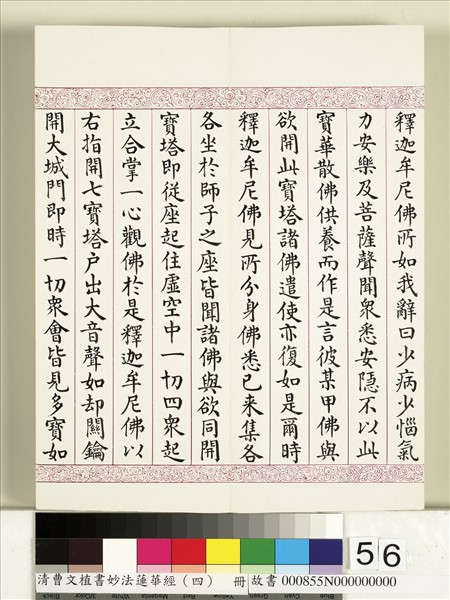 釋迦牟尼佛所如我辭曰少病少惱氣
力安樂及菩薩聲聞衆悉安隱不以此
寶華散佛供養而作是言彼某甲佛與
欲開此寶塔諸佛遣使亦復如是爾時
釋迦牟尼佛見所分身佛悉已来集各
各坐於師子之座皆聞諸佛與欲同開
寶塔即從座起住虛空中一切四衆起
立合掌一心觀佛於是釋迦牟尼佛以
右指開七寶塔户出大音聲如却關鑰
開大城門即時一切衆會皆見多寶如
56
清曹文植書妙法蓮華經（四） 冊 故書 000855N000000000